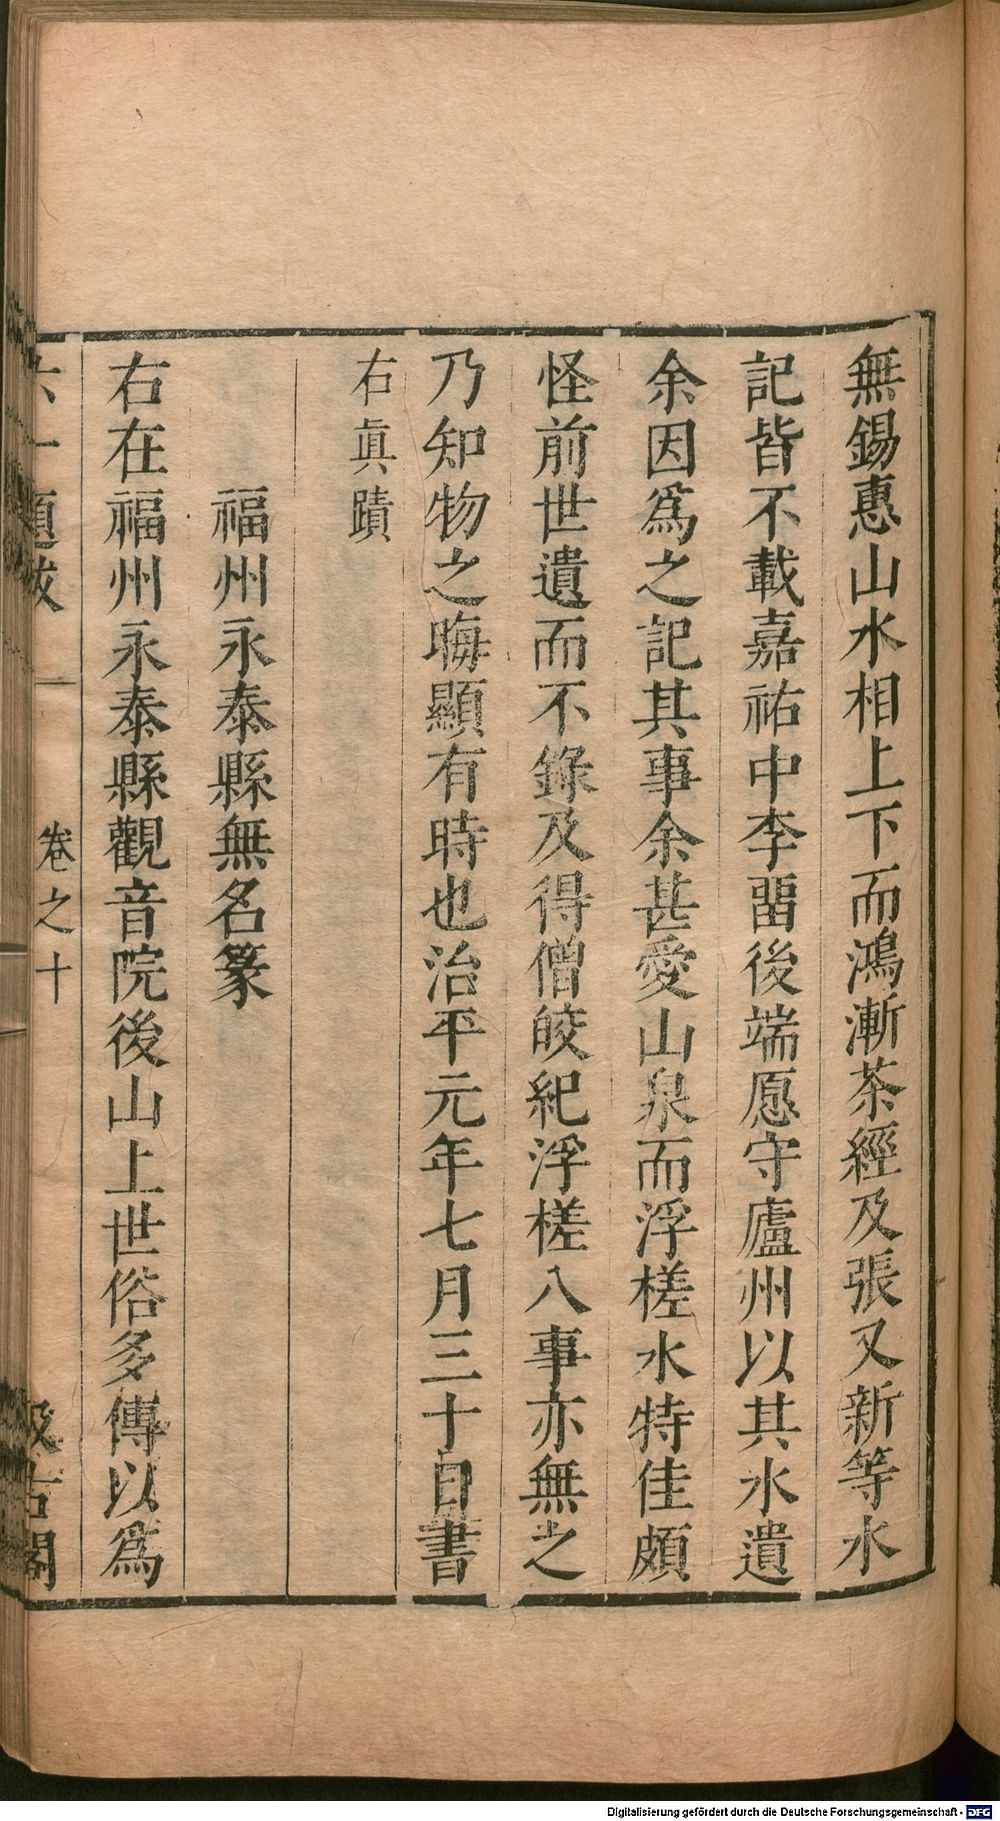 無錫惠山水相上下而鴻漸茶經及張又新等水
記皆不載嘉祐中李畱後端愿守廬州以其水遺
余因爲之記其事余甚愛山泉而浮槎水特佳頗
怪前世遺而不錄及得僧皎紀浮槎八事亦無之
乃知物之晦顯有時也治平元年七月三十日書
右眞蹟
福州永泰縣無名篆
右在福州永泰縣觀音院後山上世俗多傳以爲
六一題跋
卷之十
汲古閣
Digitalisierung gefördert durch die Deutsche Forschungsgemeinschaft - DFG